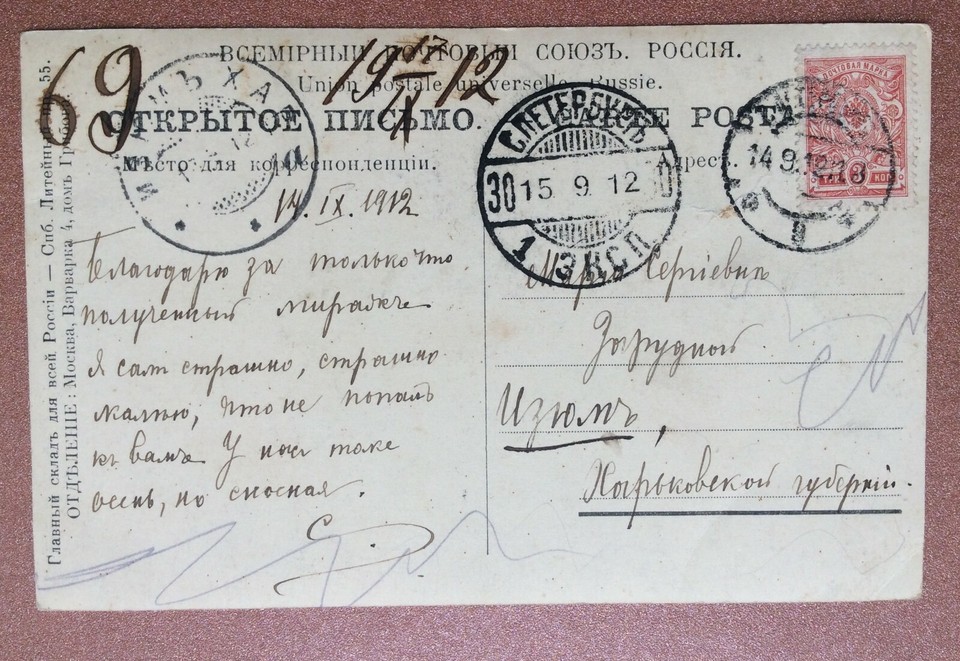 ВСЕМІРНЫЙ ПОЧТОВЫЙ СОЮЗЪ. РОССІЯ.
Union postale universelle. Russie.
ОТКРЫТОЕ ПИСЬМО. CARTE POSTALE
Мѣсто для корреспонденціи. Адресъ.
69
19 17/IX 12
ИЗЮМЪ ХАР
С.ПЕТЕРБУРГЪ
30 15.9.12
1 ЭКСП.
14.9.12
ПОЧТОВАЯ МАРКА
3 КОП
14. IX. 1912
Благодарю за только что
полученный
Я сам страшно, страшно
жалѣю, что не попалъ
къ вамъ. У нас тоже
осень, но сносная.
Сергіевнѣ
Зарудной
Изюмъ,
Харьковской губерніи.
Главный складъ для всей Россіи — Спб. Литейный 55.
ОТДѢЛЕНІЕ: Москва, Варварка 4, домъ